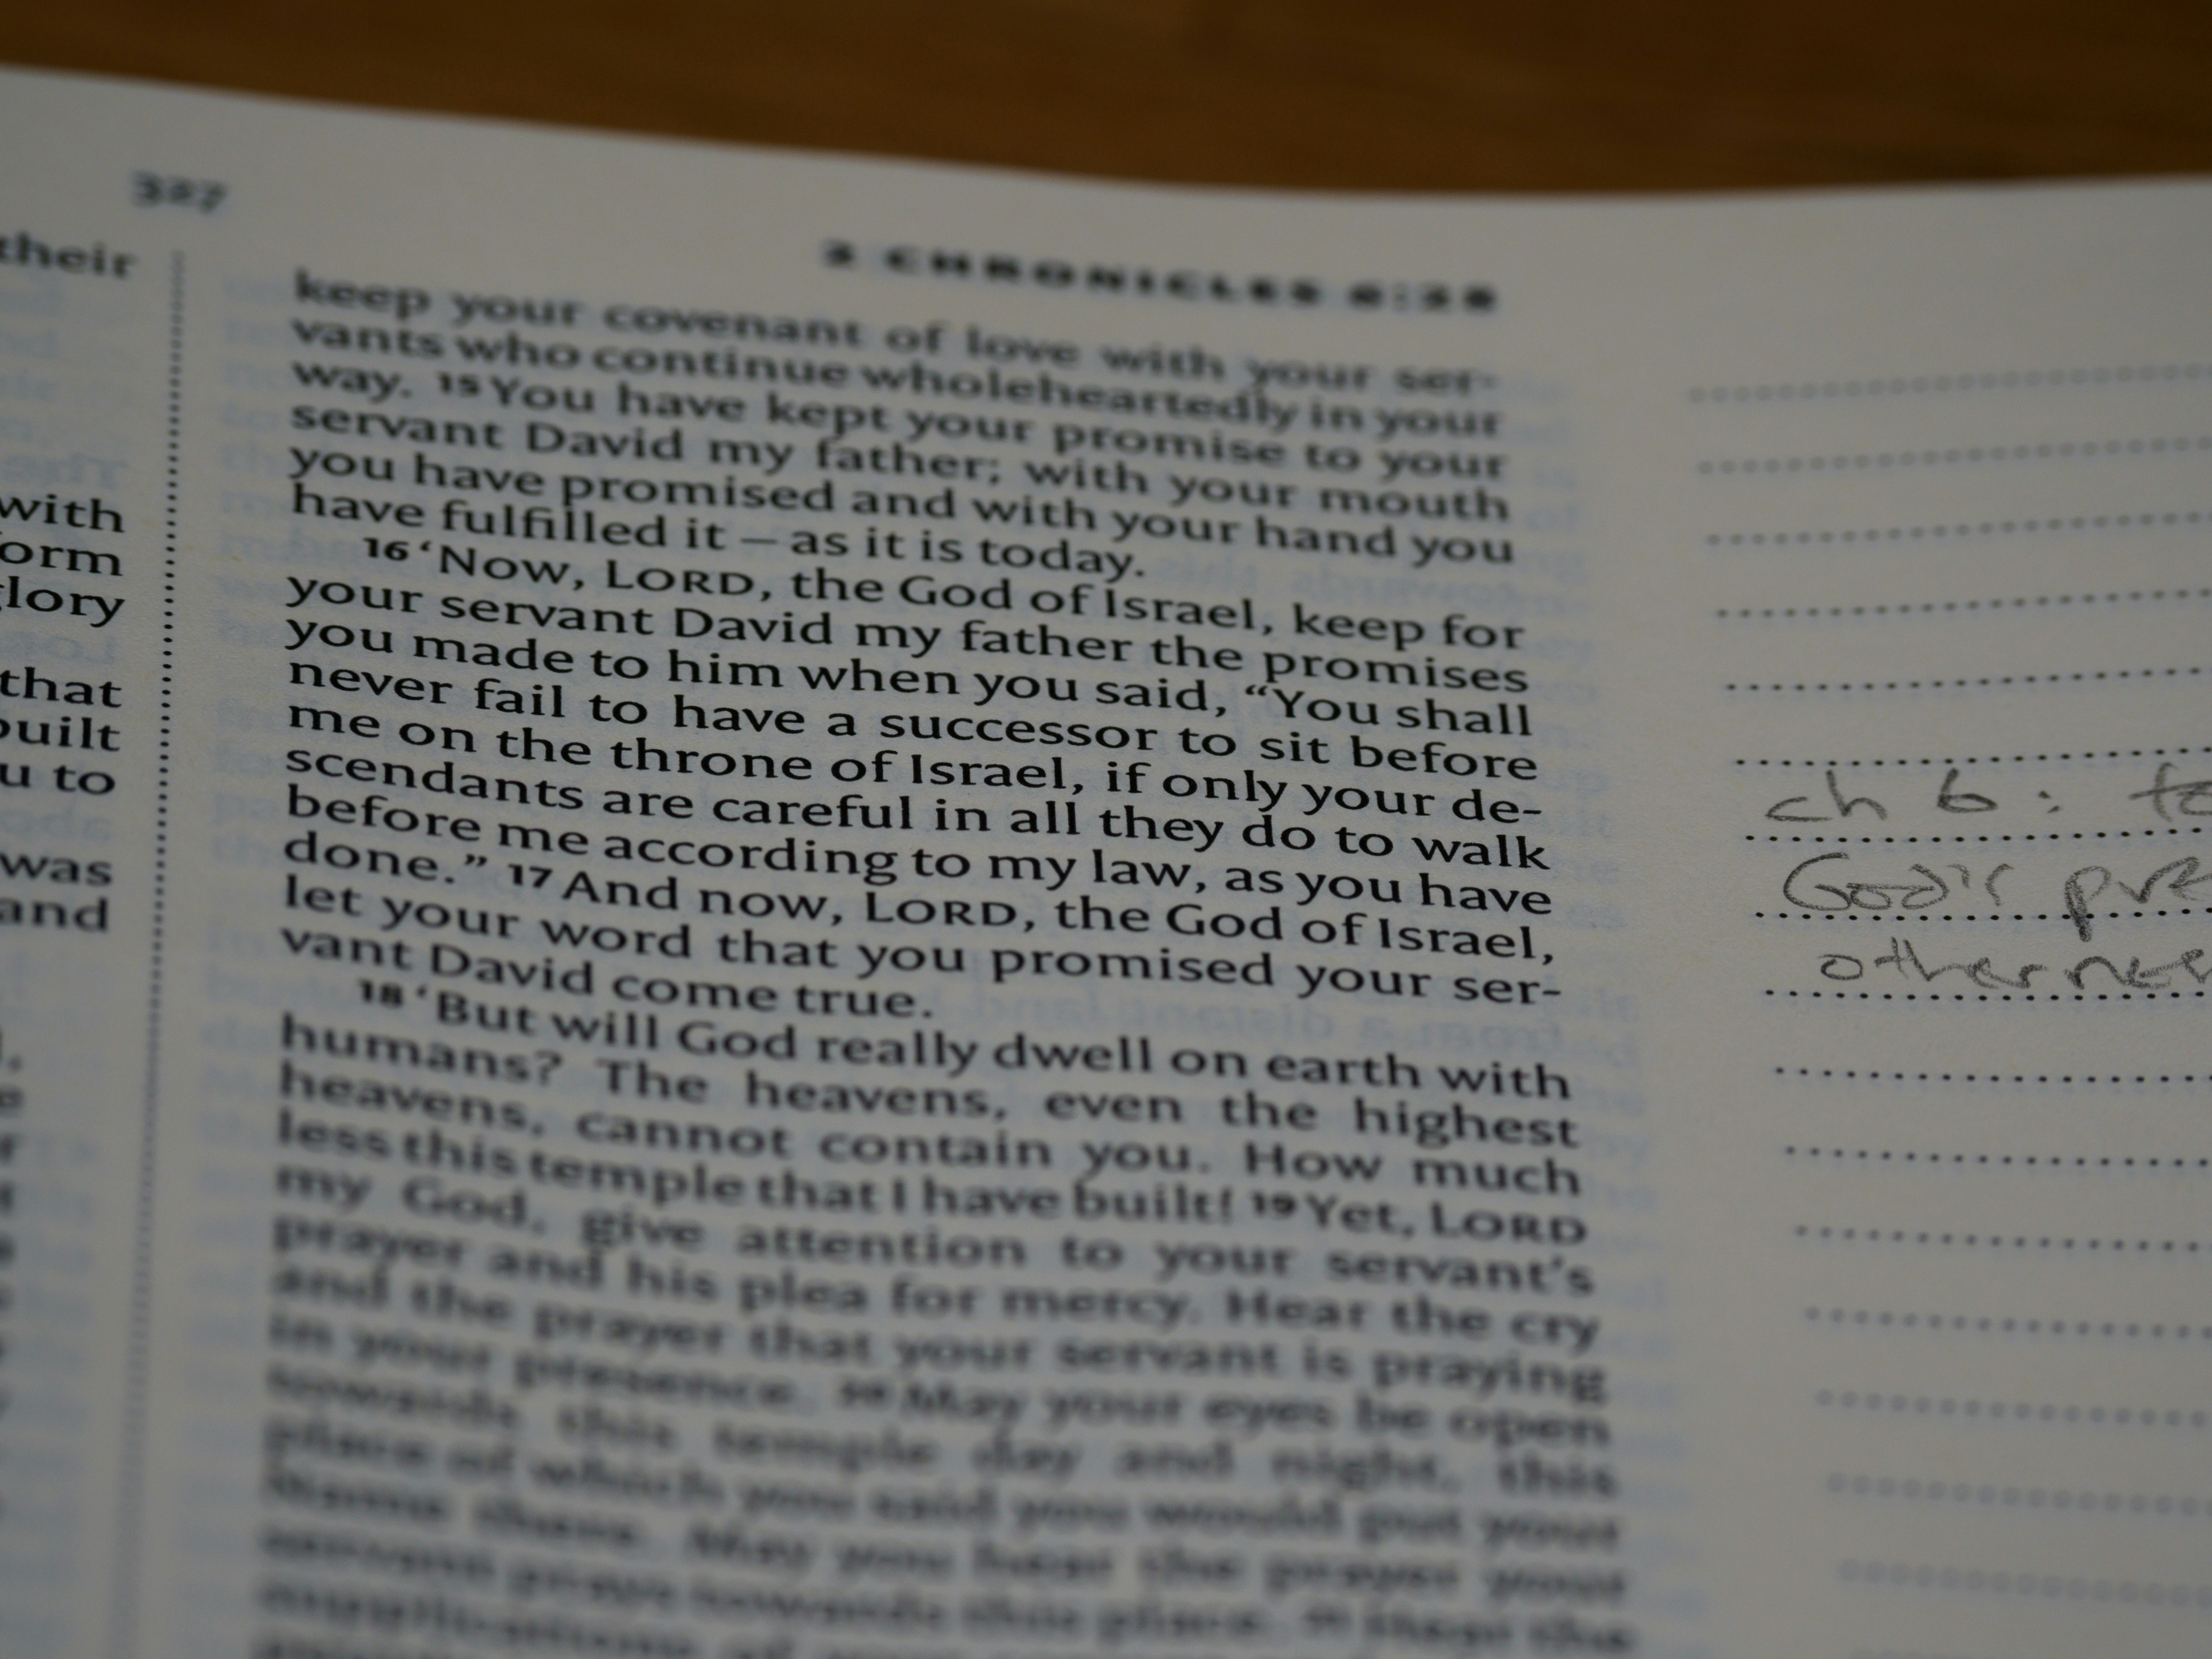 327
2 CHRONICLES 6:28
their
with
orm
glory
that
built
u to
was
and
keep your covenant of love with your ser-
vants who continue wholeheartedly in your
way. 15 You have kept your promise to your
servant David my father; with your mouth
you have promised and with your hand you
have fulfilled it – as it is today.
16 ‘Now, LORD, the God of Israel, keep for
your servant David my father the promises
you made to him when you said, “You shall
never fail to have a successor to sit before
me on the throne of Israel, if only your de-
scendants are careful in all they do to walk
before me according to my law, as you have
done.” 17 And now, LORD, the God of Israel,
let your word that you promised your ser-
vant David come true.
18 ‘But will God really dwell on earth with
humans? The heavens, even the highest
heavens, cannot contain you. How much
less this temple that I have built! 19 Yet, LORD
my God, give attention to your servant’s
prayer and his plea for mercy. Hear the cry
and the prayer that your servant is praying
in your presence. 20 May your eyes be open
towards this temple day and night, this
place of which you said you would put your
Name there. May you hear the prayer your
servant prays towards this place. 21 Hear the
supplications of your
ch 6:
God's pre
otherness